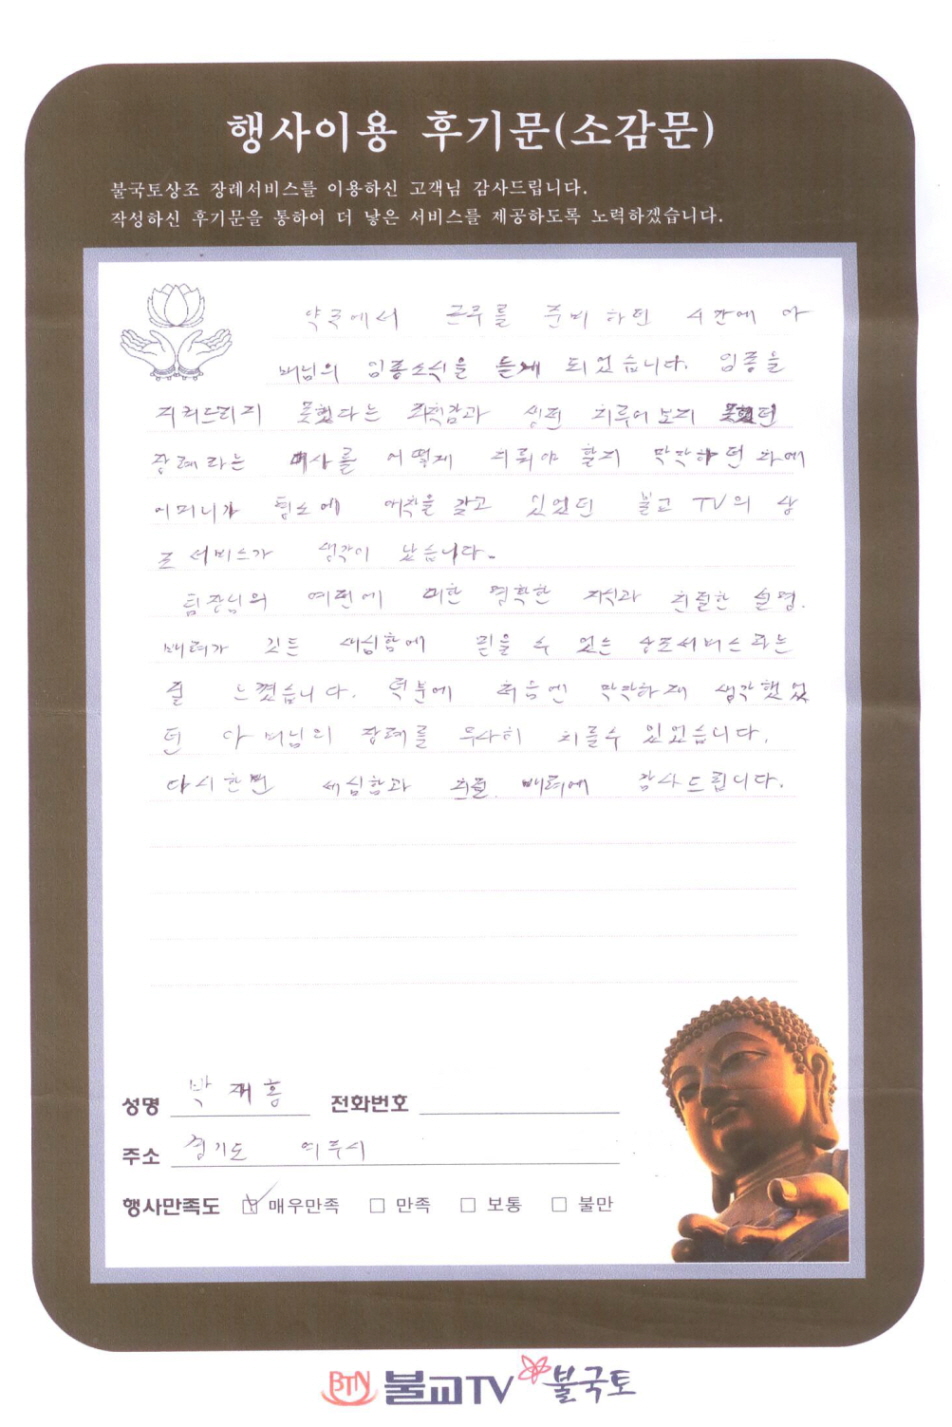 행사이용 후기문(소감문)
불국토상조 장례서비스를 이용하신 고객님 감사드립니다.
작성하신 후기문을 통하여 더 낳은 서비스를 제공하도록 노력하겠습니다.
약국에서 근무를 준비하던 시간에 아
버님의 임종소식을 듣게 되었습니다. 임종을
지켜드리지 못했다는 죄책감과 생전 치루어보지 못했던
장례라는 대사를 어떻게 치뤄야 할지 막막하던 차에
어머니가 평소에 애착을 갖고 있었던 불교 TV의 상
조 서비스가 생각이 났습니다.
팀장님의 예전에 대한 명확한 지식과 친절한 설명,
배려가 깃든 세심함에 믿을 수 있는 상조서비스라는
걸 느꼈습니다. 덕분에 처음엔 막막하게 생각했었
던 아버님의 장례를 무사히 치를수 있었습니다.
다시한번 세심함과 친절, 배려에 감사드립니다.
성명 박재홍 전화번호
주소 경기도 여주시
행사만족도 매우만족 만족 보통 불만
BTN 불교TV 불국토